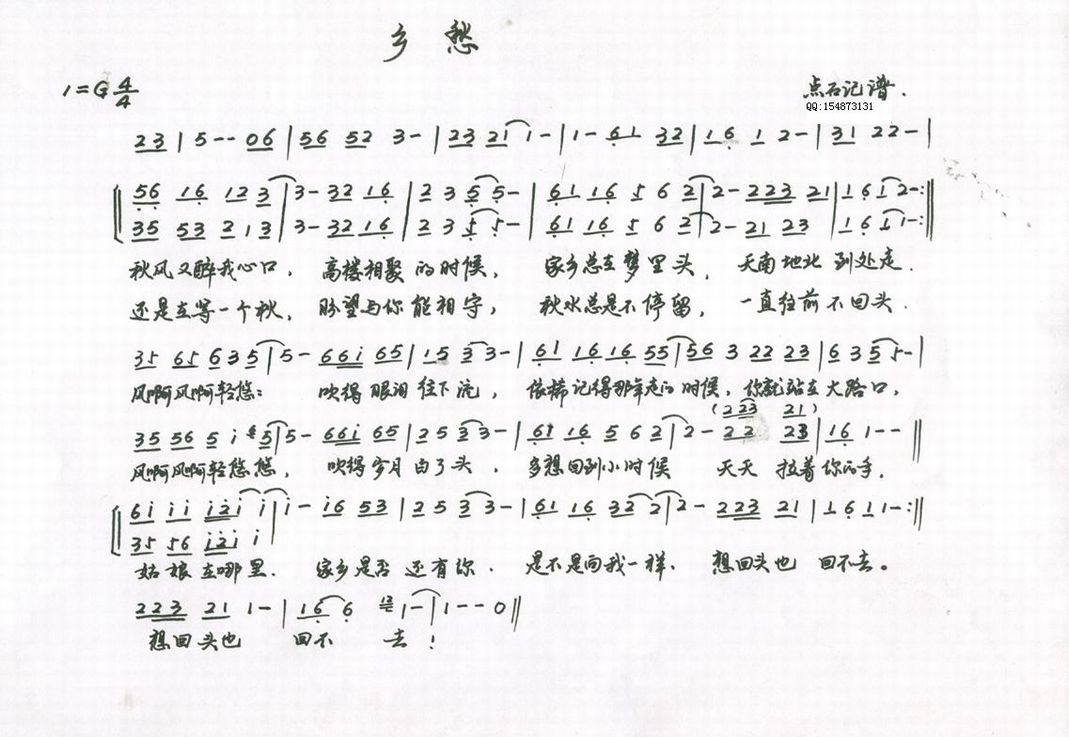 乡愁
1=G 4/4
点石记谱.
QQ:154873131
23 | 5 - - 06 | 56 52 3 - | 23 21 1 - | 1 - 61 32 | 16 1 2 - | 31 22 - |
56 16 12 3 | 3 - 32 16 | 2 3 5 5 - | 61 16 5 6 2 | 2 - 223 21 | 1 6 1 2 - :||
35 53 2 1 3 | 3 - 32 16 | 2 3 5 5 - | 61 16 5 6 2 | 2 - 21 23 | 1 6 1 1 - :||
秋风又醉我心口, 高楼相聚的时候, 家乡总在梦里头, 天南地北 到处走.
还是在等一个秋, 盼望与你能相守, 秋水总是不停留, 一直往前不回头.
35 65 6 3 5 | 5 - 66i 65 | 15 3 3 - | 61 16 16 55 | 56 3 22 23 | 6 3 5 5 - |
风啊风啊轻悠: 吹得 眼泪 往下流, 依稀记得那年走的时候, 你就站在大路口,
(223 21)
35 56 5 i 5 | 5 - 66i 65 | 2 5 3 3 - | 61 16 5 6 2 | 2 - 22 23 | 16 1 - - ||
风啊风啊轻悠悠, 吹得岁月白了头, 多想回到小时候 天天 拉着你的手.
6i ii i2i i | i - i6 53 | 2 5 3 3 - | 61 16 32 2 | 2 - 223 21 | 1 6 1 1 - :||
35 56 i2i i
姑娘在哪里. 家乡是否还有你. 是不是向我一样. 想回头也 回不去。
223 21 1 - | 16 6 12 1 - | 1 - - 0 ||
想回头也 回不 去!